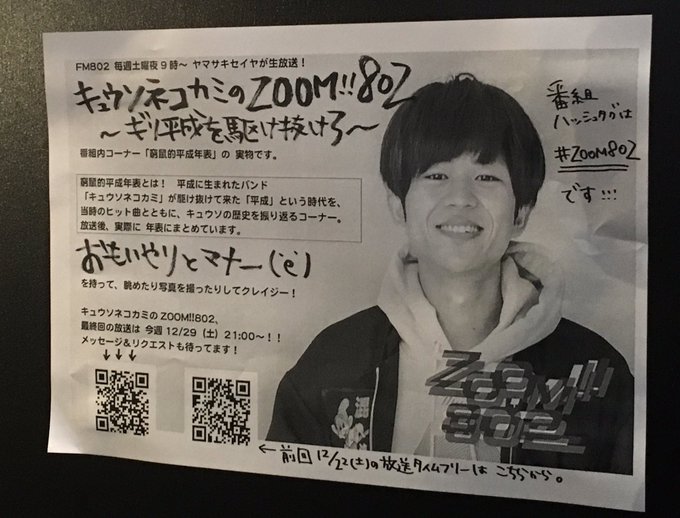 FM802 毎週土曜夜9時～ ヤマサキセイヤが生放送！
キュウソネコカミのZOOM!!802
～ギリ平成を駆け抜けろ～
番組内コーナー「窮鼠的平成年表」の 実物です。
窮鼠的平成年表とは！ 平成に生まれたバンド
「キュウソネコカミ」が駆け抜けて来た「平成」という時代を、
当時のヒット曲とともに、キュウソの歴史を振り返るコーナー。
放送後、実際に 年表にまとめています。
おもいやりとマナー('e')
を持って、眺めたり写真を撮ったりしてクレイジー！
キュウソネコカミの ZOOM!!802、
最終回の放送は 今週 12/29（土）21:00～！！
メッセージ＆リクエストも待ってます！
↓↓↓
番組
ハッシュタグは
#ZOOM802
です!!!
ZOOM!!
802
←前回 12/22(土)の放送タイムフリーは こちらから。